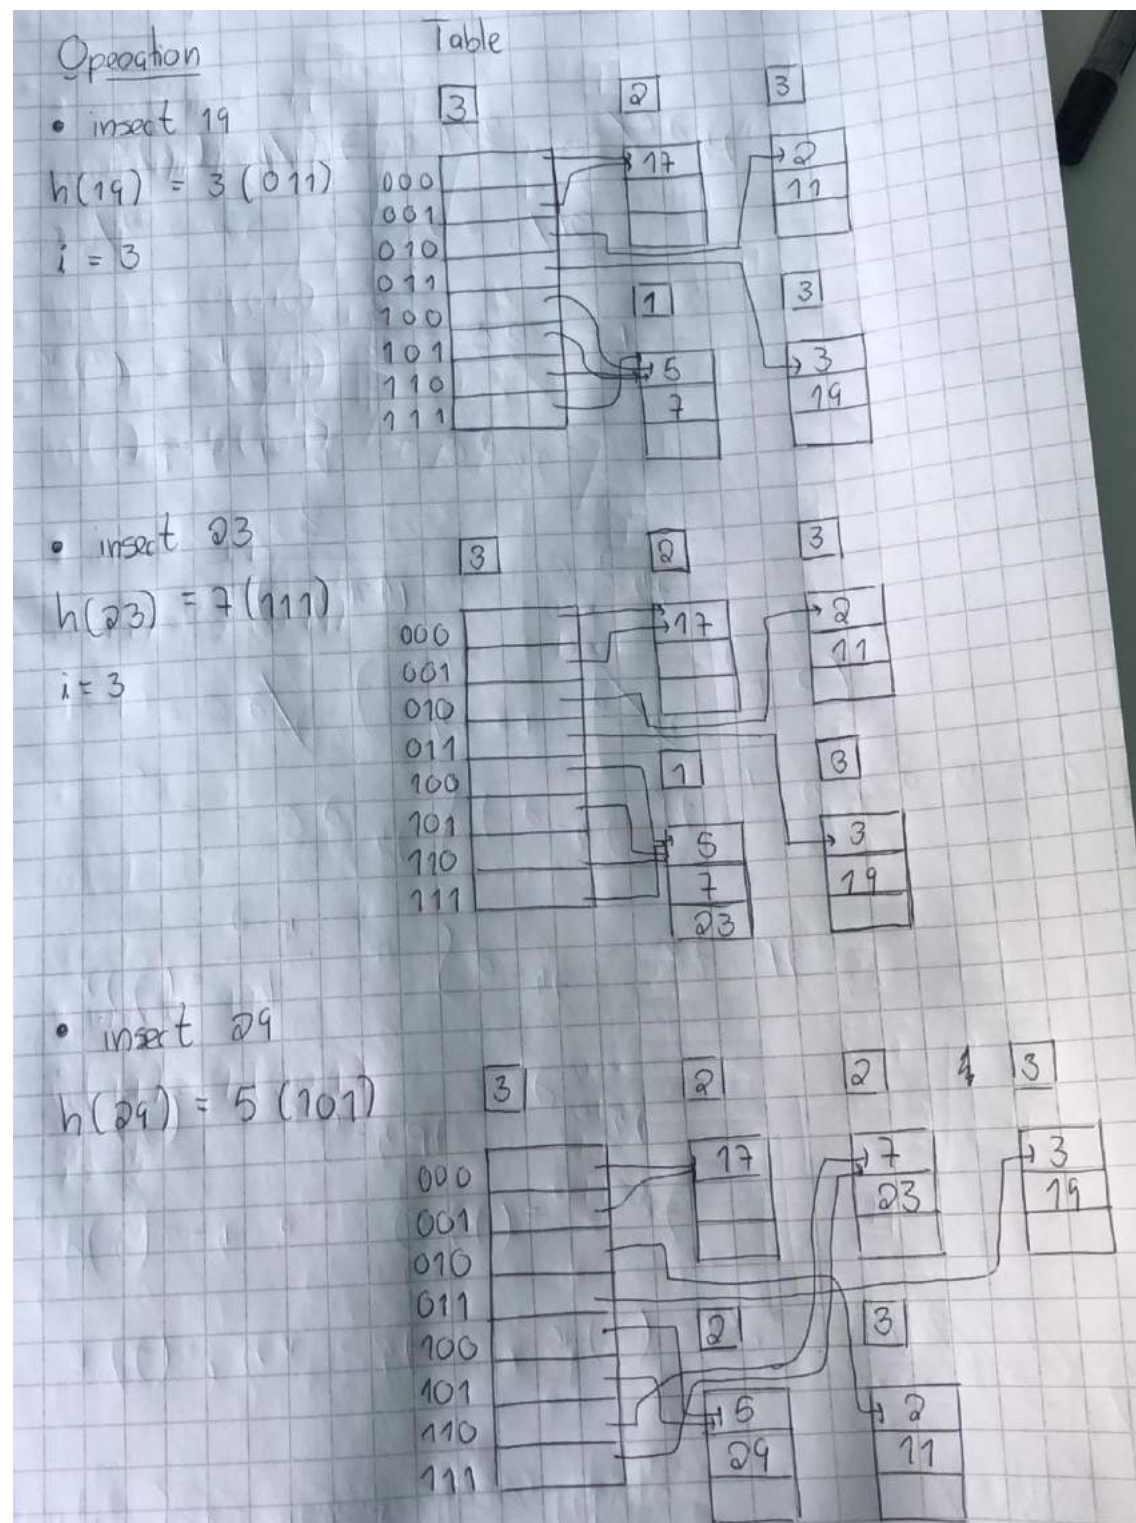 Operation Table
• insert 19
3 2 3
h(19) = 3 (011)
i = 3
000
001
010
011
100
101
110
111
17
2
11
1 3
5
7
3
19
• insert 23
3 2 3
h(23) = 7 (111)
i = 3
000
001
010
011
100
101
110
111
17
2
11
1 3
5
7
23
3
19
• insert 29
3 2 2 3
h(29) = 5 (101)
000
001
010
011
100
101
110
111
17
7
23
3
19
2 3
5
29
2
11